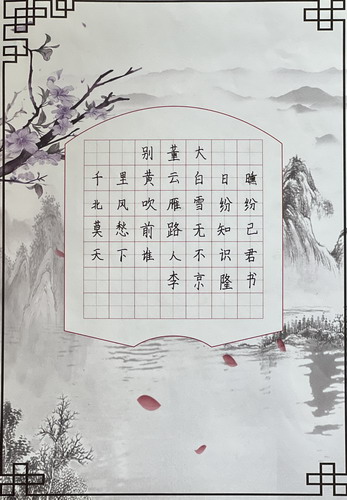 别董大
千里黄云白日曛
北风吹雁雪纷纷
莫愁前路无知己
天下谁人不识君
李京隆书